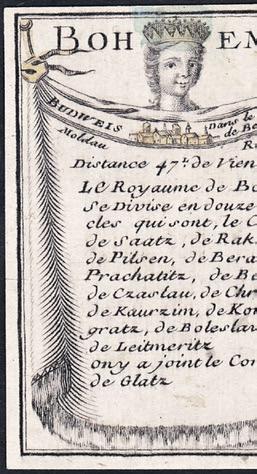 BOH EM
BUDWEIS
Moldau
Dans le
de Be
R
Distance 47.ᵗ de Vien
LE Royaume de Bo
Se Divise en douze
cles qui sont, le C
de Saatz, de Rak
de Pilsen, de Bera
Prachatitz, de Be
de Czaslau, de Chr
de Kaurzim, de Kon
gratz, de Boleslau
de Leitmeritz
on y a joint le Con
de Glatz